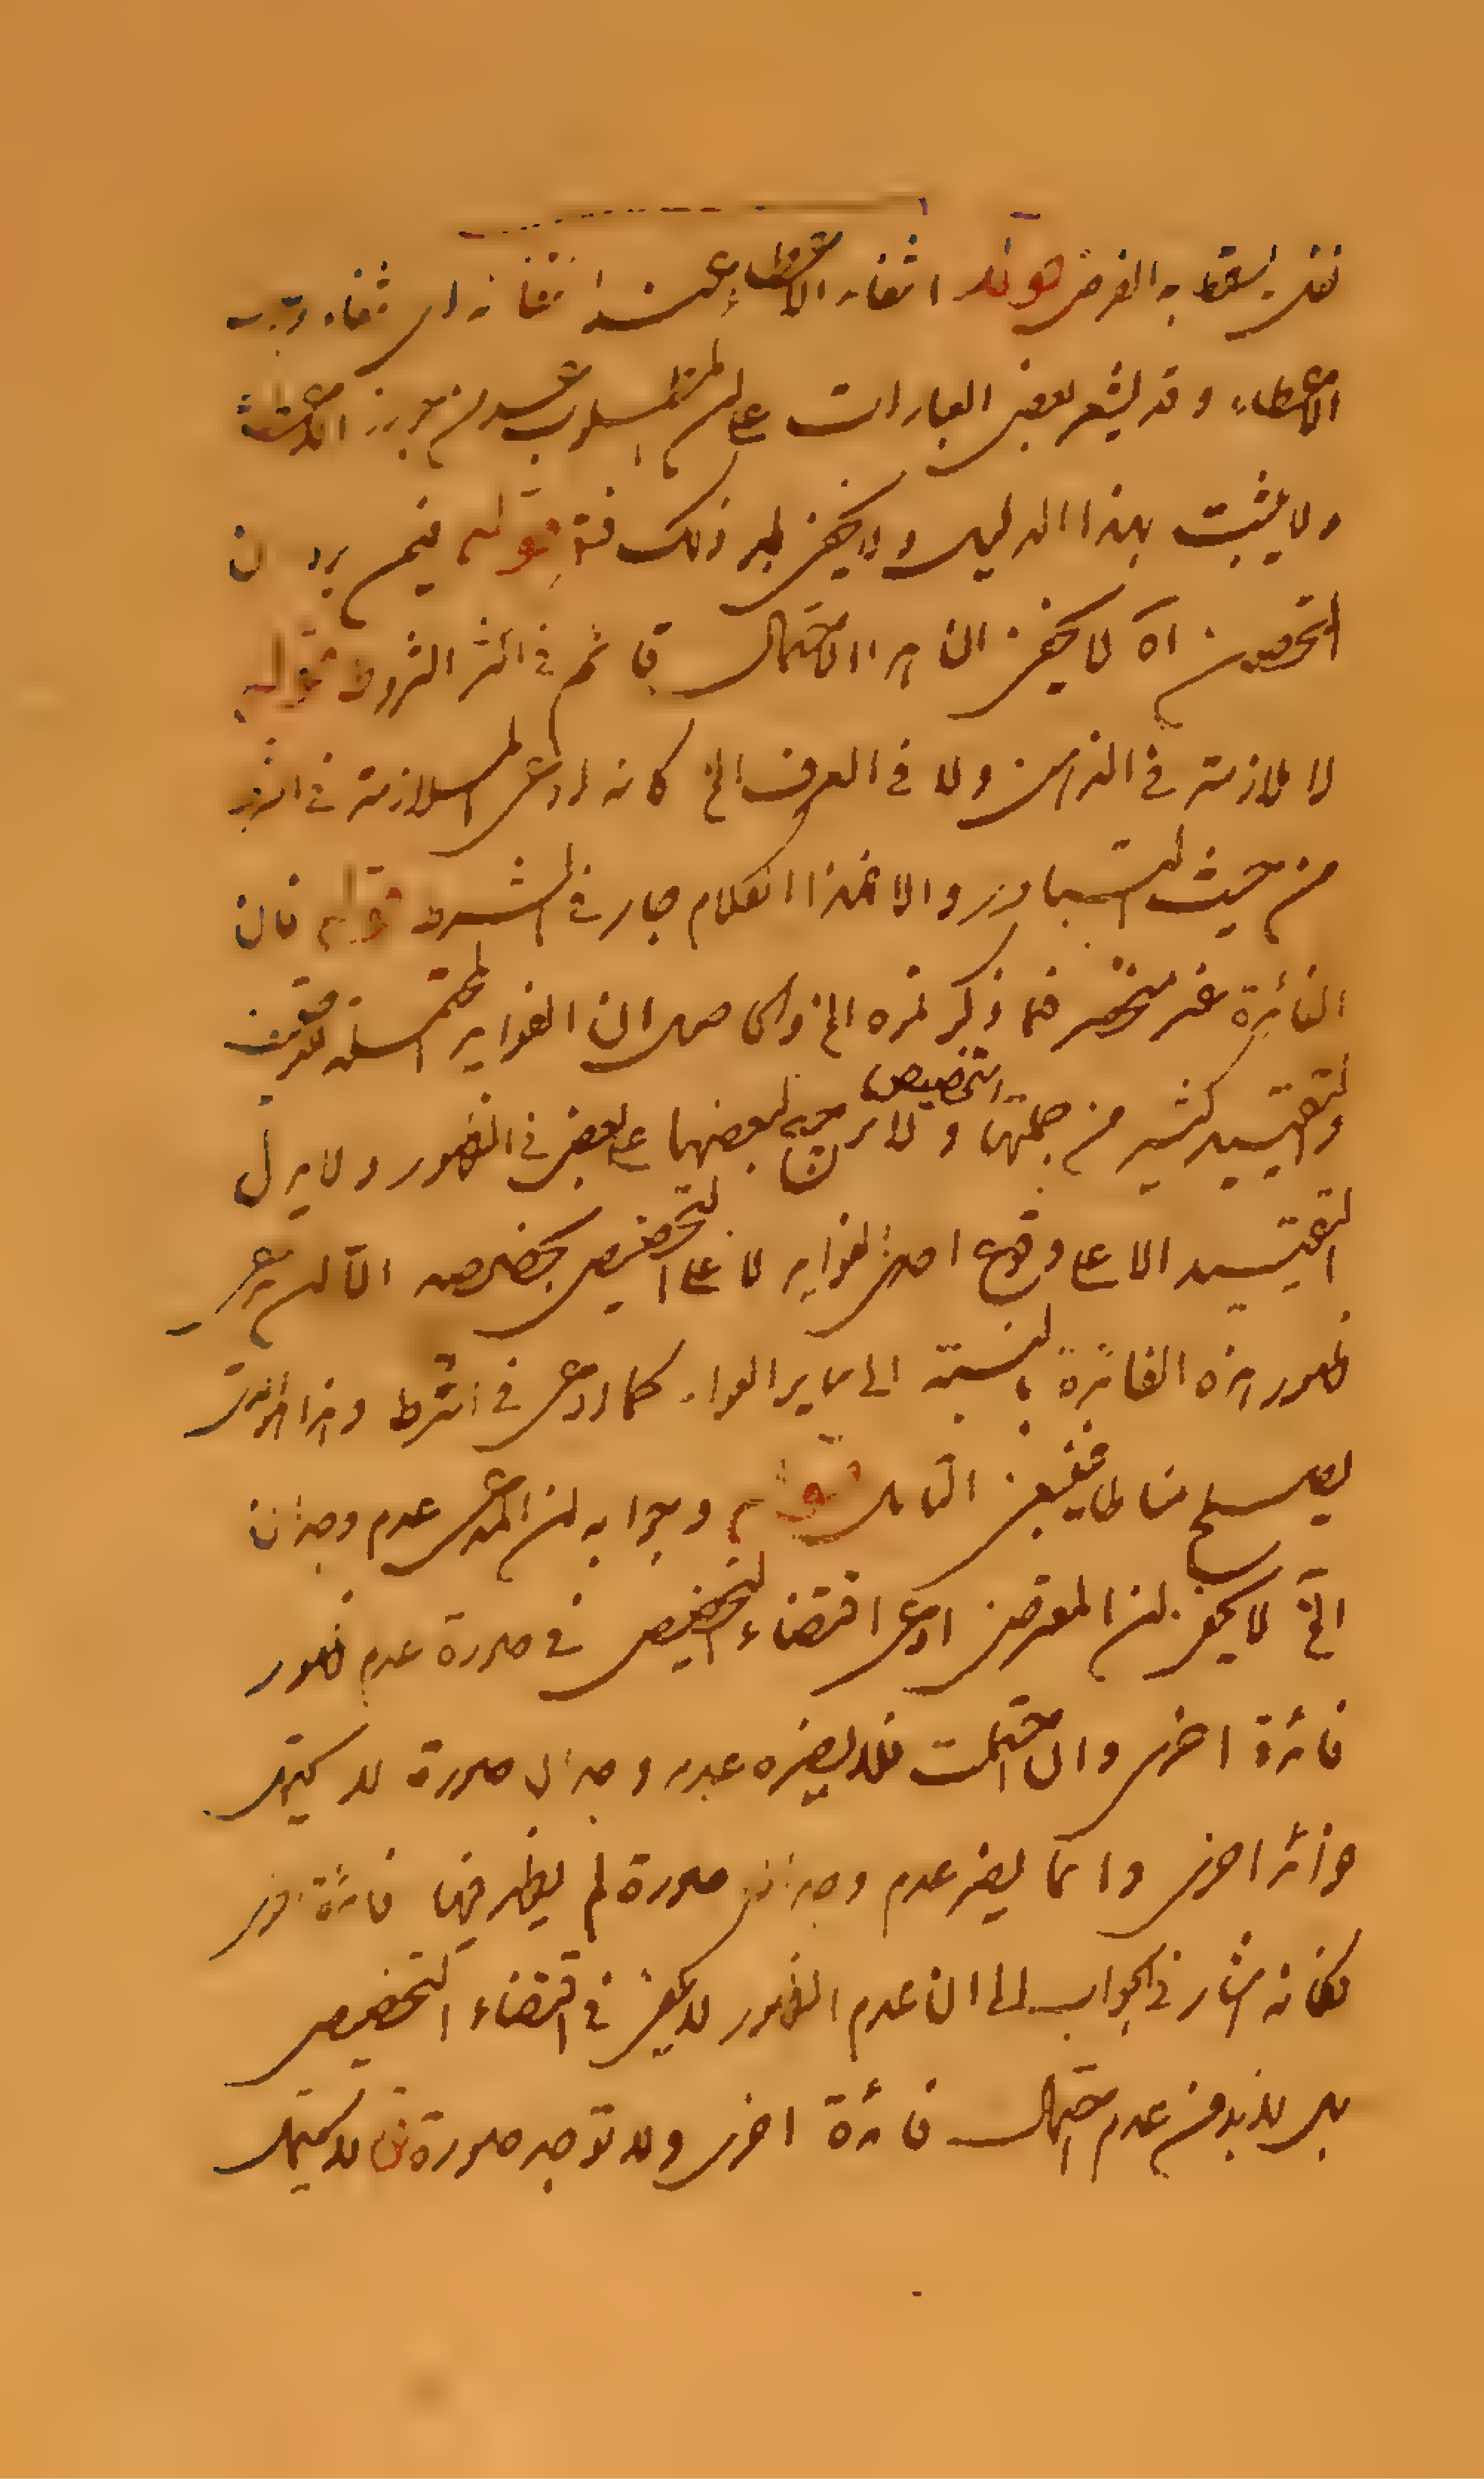 يسقط به الفرض قوله انتفاء الاعطاء عند انتفائه اى انتفاء وجوب
الاعطاء وقد يشعر بعض العبارات على ان المطلوب عدم جواز
ولا يثبت بهذا الدليل ولا يخفى بعد ذلك فت قوله فيمن يرد ان
التحصن اه لا يخفى ان هذا الاحتمال قائم فى اكثر الشروط قوله
لا ملازمة فى الذهن ولا فى العرف الخ كانه ادعى الملازمة فى الشرط
من حيث التبادر والا فهذا الكلام جار فى الشرط قوله فان
الفائدة غير منحصر فيما ذكرتمره الخ والحاصل ان الفوايد المحتملة
والتقييد كثير من جملتها التخصيص ولا ترجيح لبعضها على بعض فى الظهور ولا يدل
التقييد الا على وقوع احدى الفوايد لا على التخصيص بخصوصه الا ان يدعى
ظهور هذه الفائدة بالنسبة الى ساير الفوا كما ادعى فى الشرط وهذا الذى
يصلح مناطا فينبغى التامل قوله وجوابه ان المدعى عدم وجدان
الخ لا يخفى ان المعترض ادعى اقتضاء التخصيص فى صورة عدم ظهور
فائدة اخرى وان احتملت فلا يضره عدم وجدان صورة لا يحتمل
فوائد اخرى وانما يضر عدم وجدان صورة لم يظهر فيها فائدة اخرى
فكانه اشار فى الجواب الى ان عدم الظهور لا يكفى فى اقتضاء التخصيص
بل لا بد من عدم احتمال فائدة اخرى ولا توجد صورة لا يحتمل